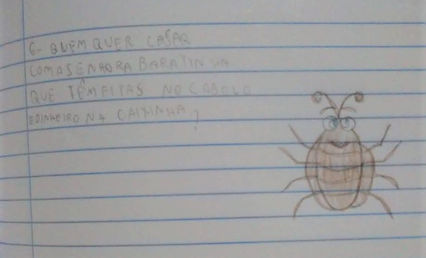 6- QUEM QUER CASAR
COMASENHORA BARATINHA
QUE TEMFITAS NO CABELO
EDINHEIRO NA CAIXINHA?